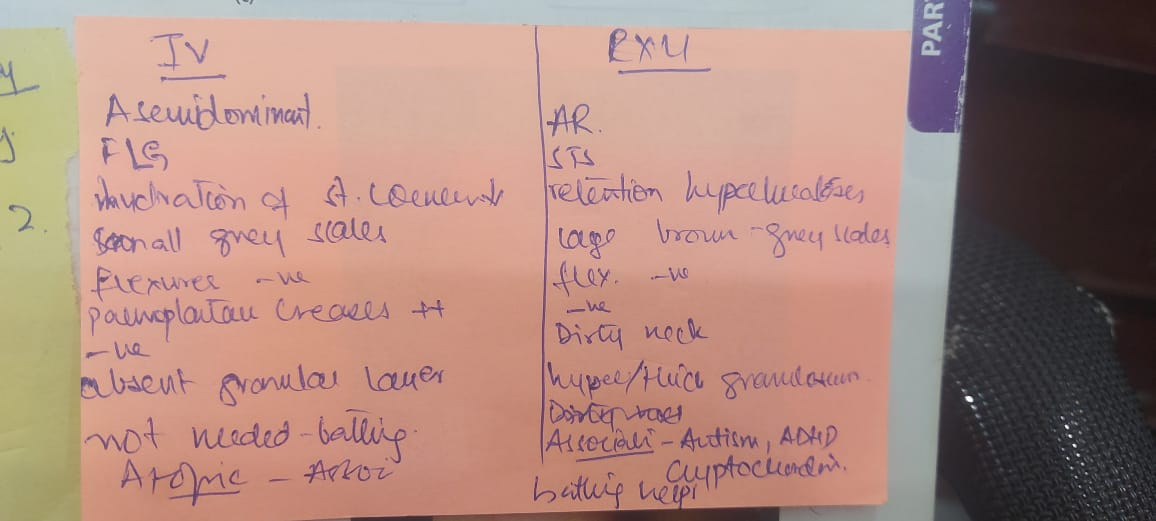 PAR
y
y
2.
IV
A semidominant.
FLG
of st. corneum
small grey scales
Flexures -ve
palmoplantar creases ++
-ve
absent granular layer
not needed - bathing.
Atopic - Assoi
RXLI
AR.
STS
retention hyperkeratoses
large brown - grey scales
flex. -ve
-ve
Dirty neck
hyper/thick granulosum.
Associati - Autism, ADHD
Cryptochordin.
bathig helps